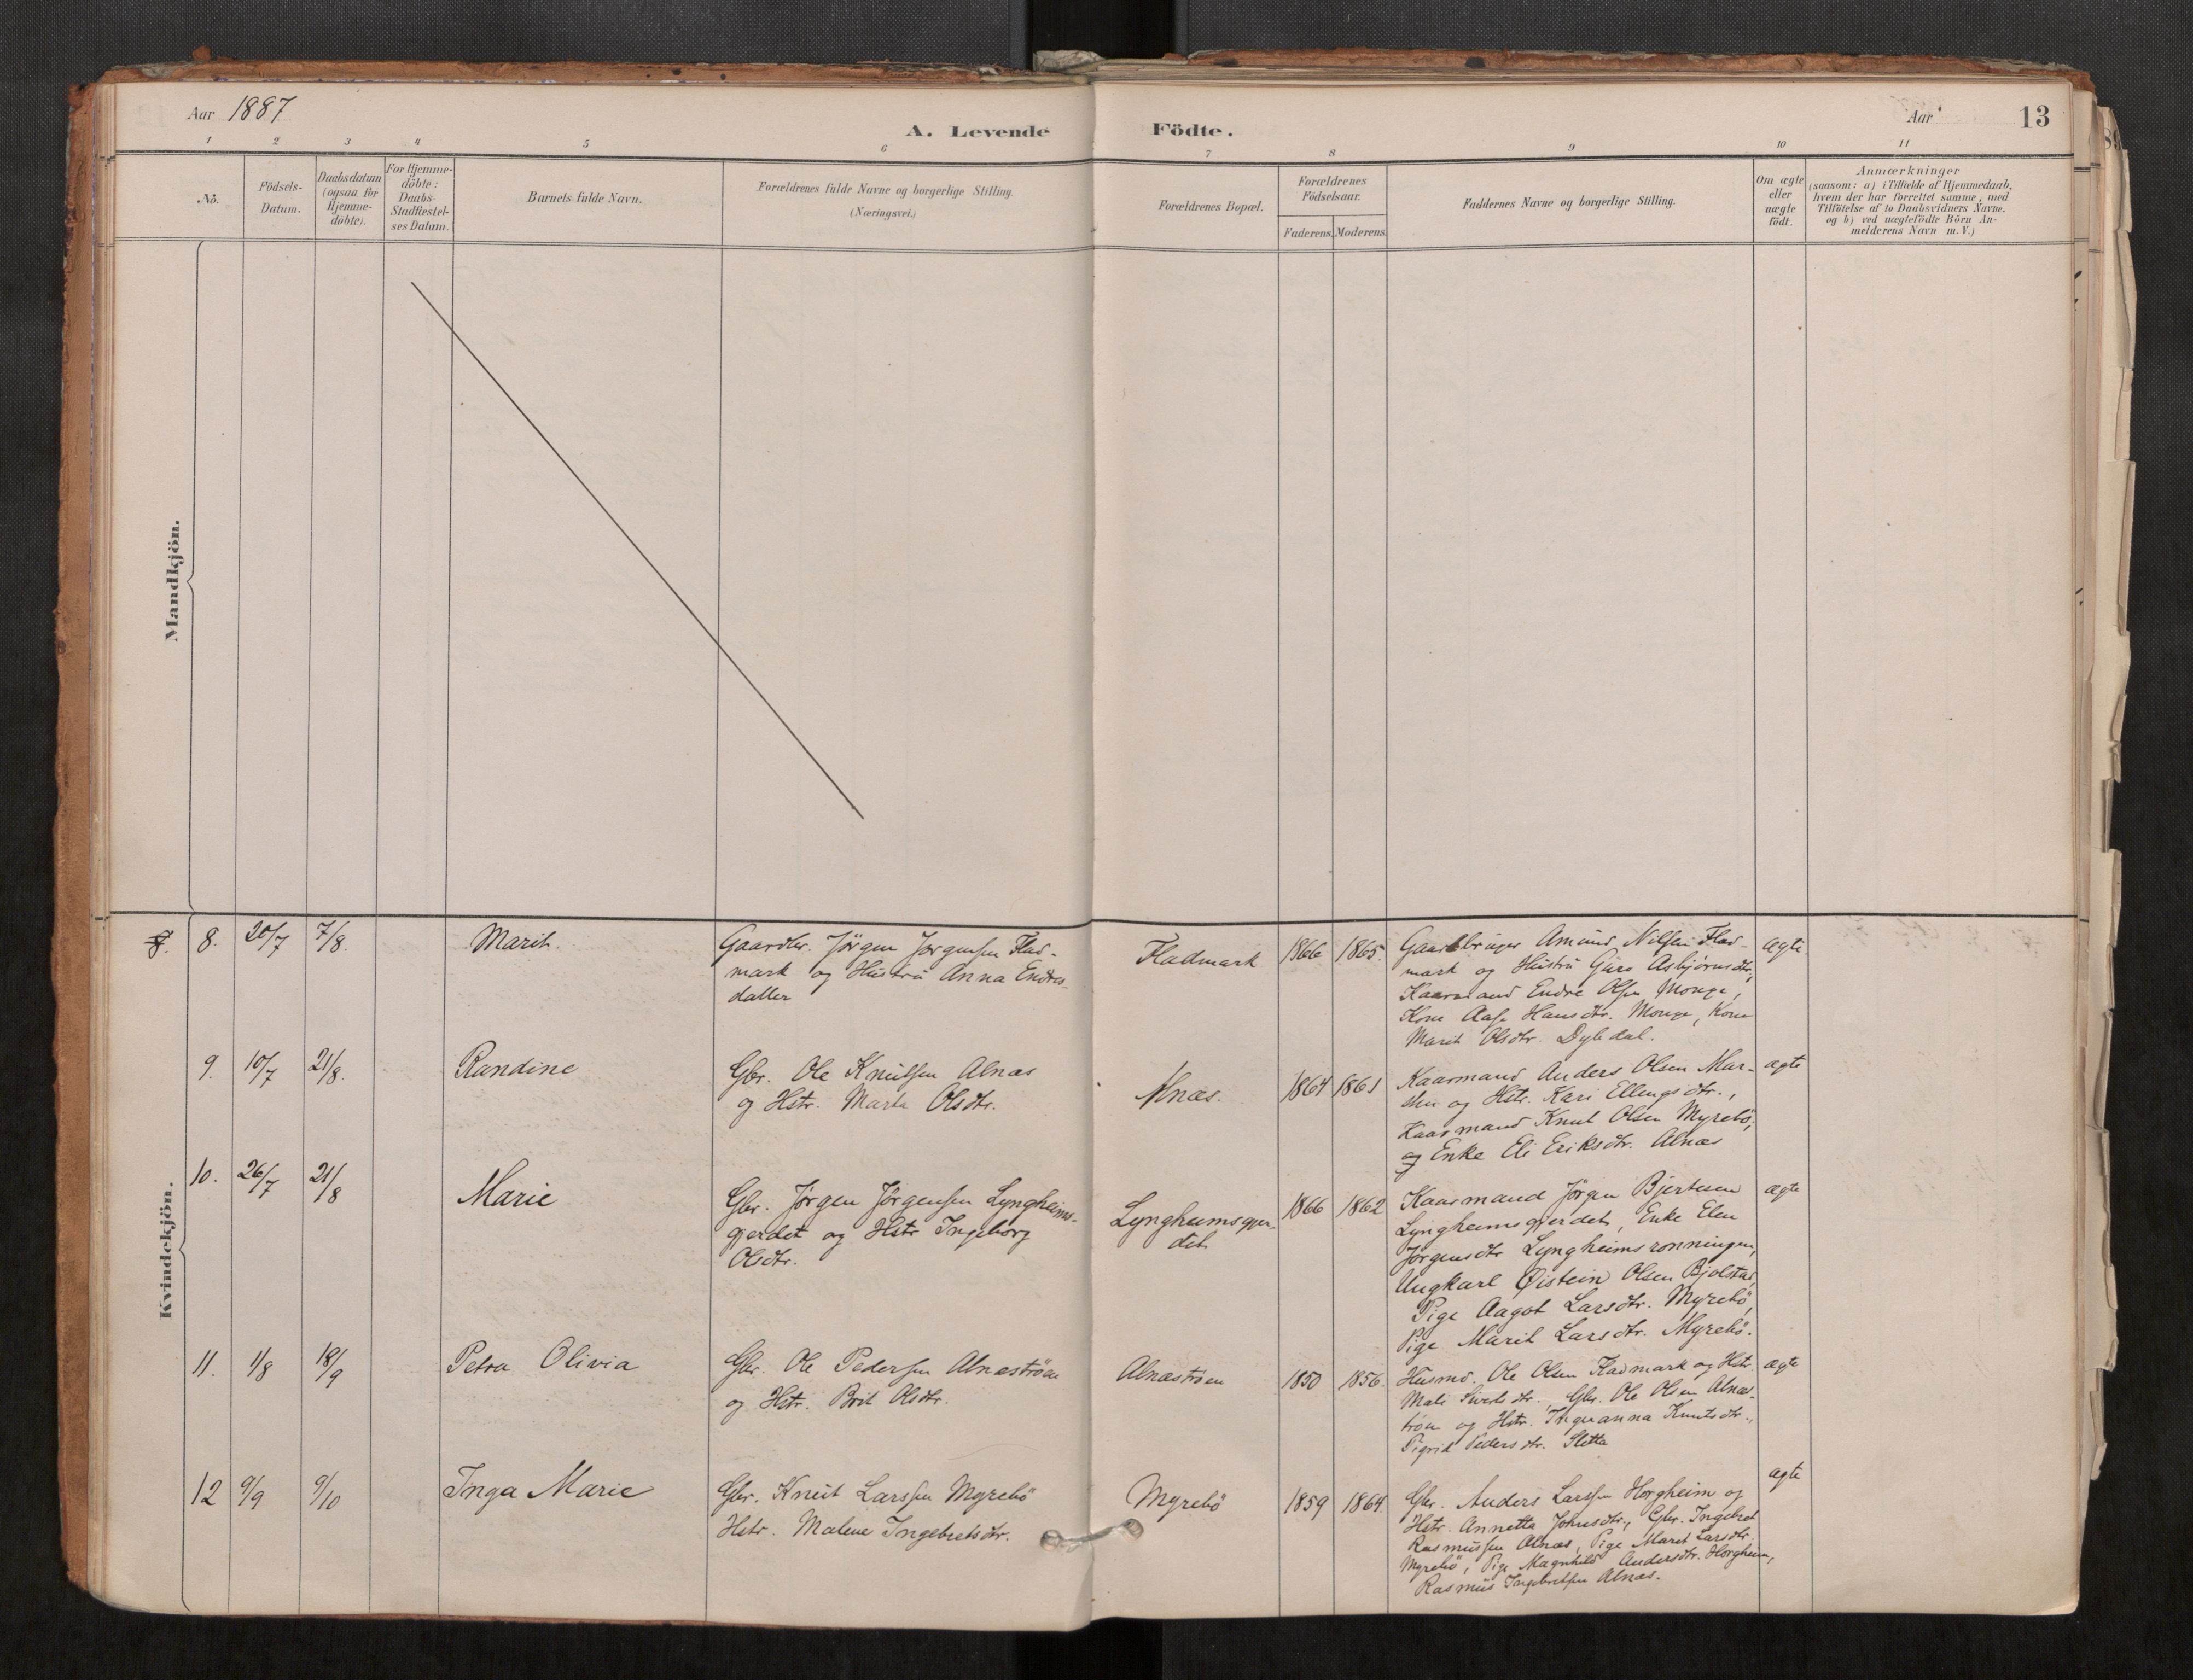 Aar 1887
A. Levende Födte.
Aar
13
1 2 3 4 5 6 7 8 9 10 11
No.
Födsels-
Datum.
Daabsdatum
(ogsaa for
Hjemme-
döbte).
For Hjemme-
döbte:
Daabs-
Stadfæstel-
ses Datum.
Barnets fulde Navn.
Forældrenes fulde Navne og borgerlige Stilling.
(Næringsvei.)
Forældrenes Bopæl.
Forældrenes
Födselsaar.
Faderens. Moderens.
Faddernes Navne og borgerlige Stilling.
Om ægte
eller
uægte
födt.
Anmærkninger
(saasom: a) i Tilfælde af Hjemmedaab,
hvem der har forrettet samme, med
Tilföielse af to Daabsvidners Navne,
og b) ved uægtefödte Börn An-
melderens Navn m.V.)
Mandkjön.
Kvindekjön.
8. 20/7 7/8.
Marit
Gaardbr. Jörgen Jorgensen Flad-
mark og Hustru Anna Endres-
datter
Fladmark
1866 1865.
Gaardbruger Amund Nilsen Flad-
mark og Hustru Guro Asbjörnsdtr,
Kaarmand Endre Olsen Monge,
Kone Aase Hansdtr. Monge, Kone
Marit Olsdtr. Dyledal.
ægte.
9. 10/7 21/8.
Randine
Gbr. Ole Knutsen Alnæs
og Hstr. Marta Olsdtr.
Alnæs.
1864 1861
Kaarmand Anders Olsen Mar-
sten og Hstr. Kari Ellingsdtr.,
Kaarmand Knut Olsen Myrebö,
og Enke Eli Eriksdtr. Alnæs
ægte
10. 26/7 21/8
Marie
Gbr. Jörgen Jörgensen Lyngheims-
gjerdet og Hstr Ingeborg
Olsdtr.
Lyngheimsgjer-
det
1866 1862
Kaarmand Jörgen Bjertesen
Lyngheimsgjerdet, Enke Elen
Jørgensdtr Lyngheimsrønningen,
Ungkarl Øistein Olsen Bjolstad,
Pige Aagot Larsdtr. Myrebö,
Pige Marit Larsdtr. Myrebö.
ægte
11. 1/8 18/9
Petra Olivia
Gbr. Ole Pedersen Alnæströen
og Hstr. Brit Olsdtr.
Alnæströen
1850 1856.
Husmd. Ole Olsen Fladmark og Hstr.
Mali Sivertsdtr., Gbr. Ole Olsen Alnæs-
tröen og Hstr. Inguanna Knutsdtr.,
Pedersdtr. Sletta
ægte
12 9/9 9/10
Inga Marie
Gbr. Knut Larssen Myrebö
Hstr. Malene Ingebretsdtr.
Myrebö
1859 1864.
Gbr. Anders Larssen Horgheim og
Hstr. Annetta Johnsdtr., Gbr. Ingebret
Rasmussen Alnæs, Pige Maret Larsdtr.
Myrebö, Pige Magnhild Andersdtr. Horgheim,
Rasmus Ingebretsen Alnæs.
ægte